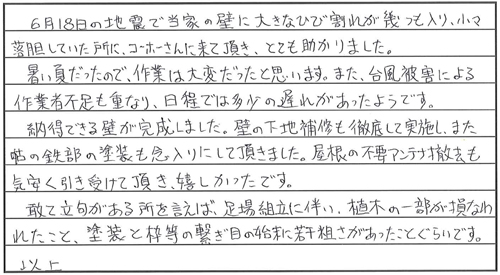 6月18日の地震で当家の壁に大きなひび割れが幾つも入り、小マ
落胆していた所に、コーホーさんに来て頂き、とても助かりました。
暑い夏だったので、作業は大変だったと思います。また、台風被害による
作業者不足も重なり、日程では多少の遅れがあったようです。
納得できる壁が完成しました。壁の下地補修も徹底して実施し、また
他の鉄部の塗装も念入りにして頂きました。屋根の不要アンテナ撤去も
気安く引き受けて頂き、嬉しかったです。
敢て文句がある所を言えば、足場組立に伴い、植木の一部が損なわ
れたこと、塗装と枠等の繋ぎ目の始末に若干粗さがあったことぐらいです。
以上